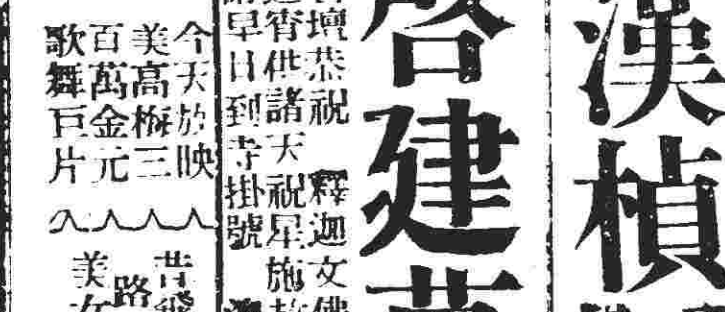 漢楨
啓建
壇恭祝 釋迦文佛
宵供諸天祝星施
早日到寺掛號
今天放映
美高梅三
百萬金元
歌舞巨片
昔
路
美女